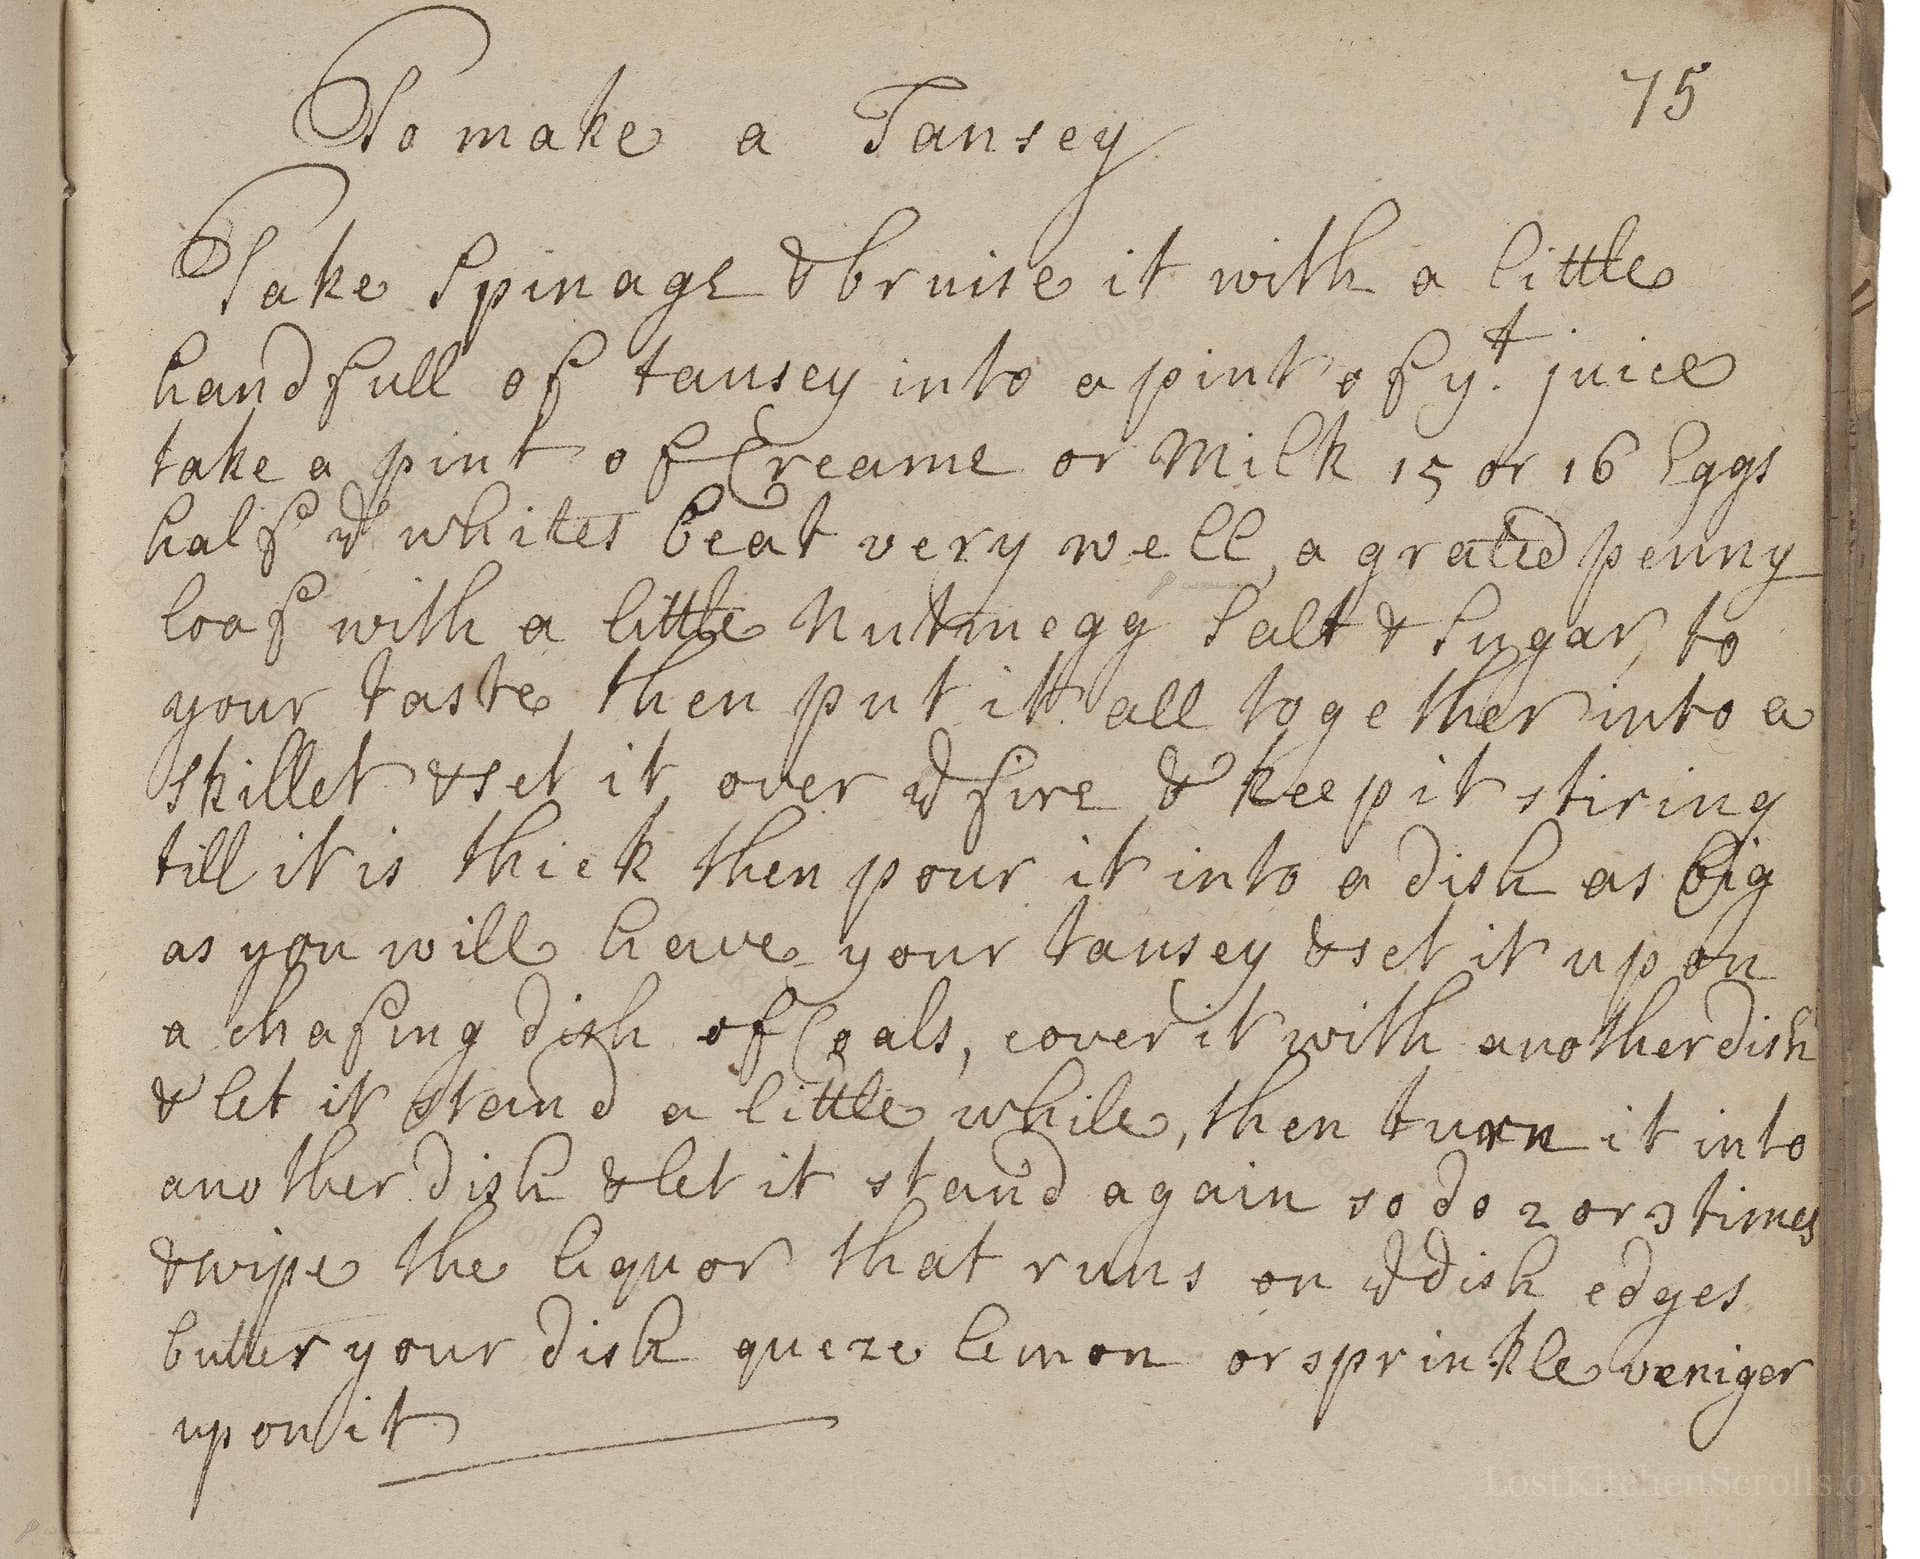 75
To make a Tansey
Take Spinage & bruise it with a little
handfull of tansey into a pint of yt juice
take a pint of Creame or Milk 15 or 16 Eggs
half ye whites beat very well, a grated penny
loaf with a little Nutmegg Salt & Sugar, to
your taste then put itt all together into a
skillet & set it over ye fire & keep it stiring
till it is thick then pour it into a dish as big
as you will have your tansey & set it upon
a chafing dish of Coals, cover it with another dish
& let it stand a little while, then turn it into
another dish & let it stand again so do 2 or 3 times
& wipe the liquor that runs on ye dish edges
butter your dish queze lemon or sprinkle veniger
upon it
LostKitchenScrolls.or